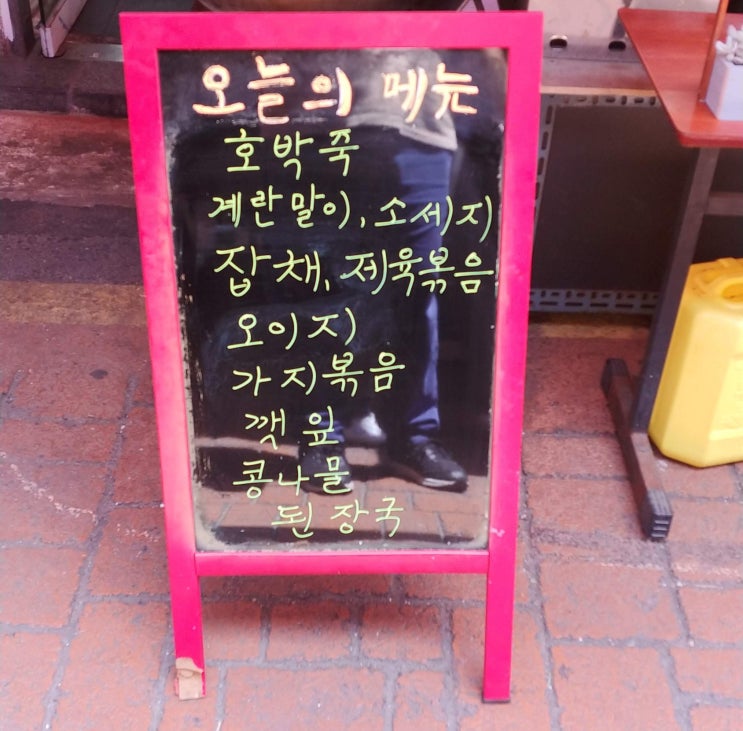 오늘의 메뉴
호박죽
계란말이, 소세지
잡채, 제육볶음
오이지
가지볶음
깻잎
콩나물
된장국